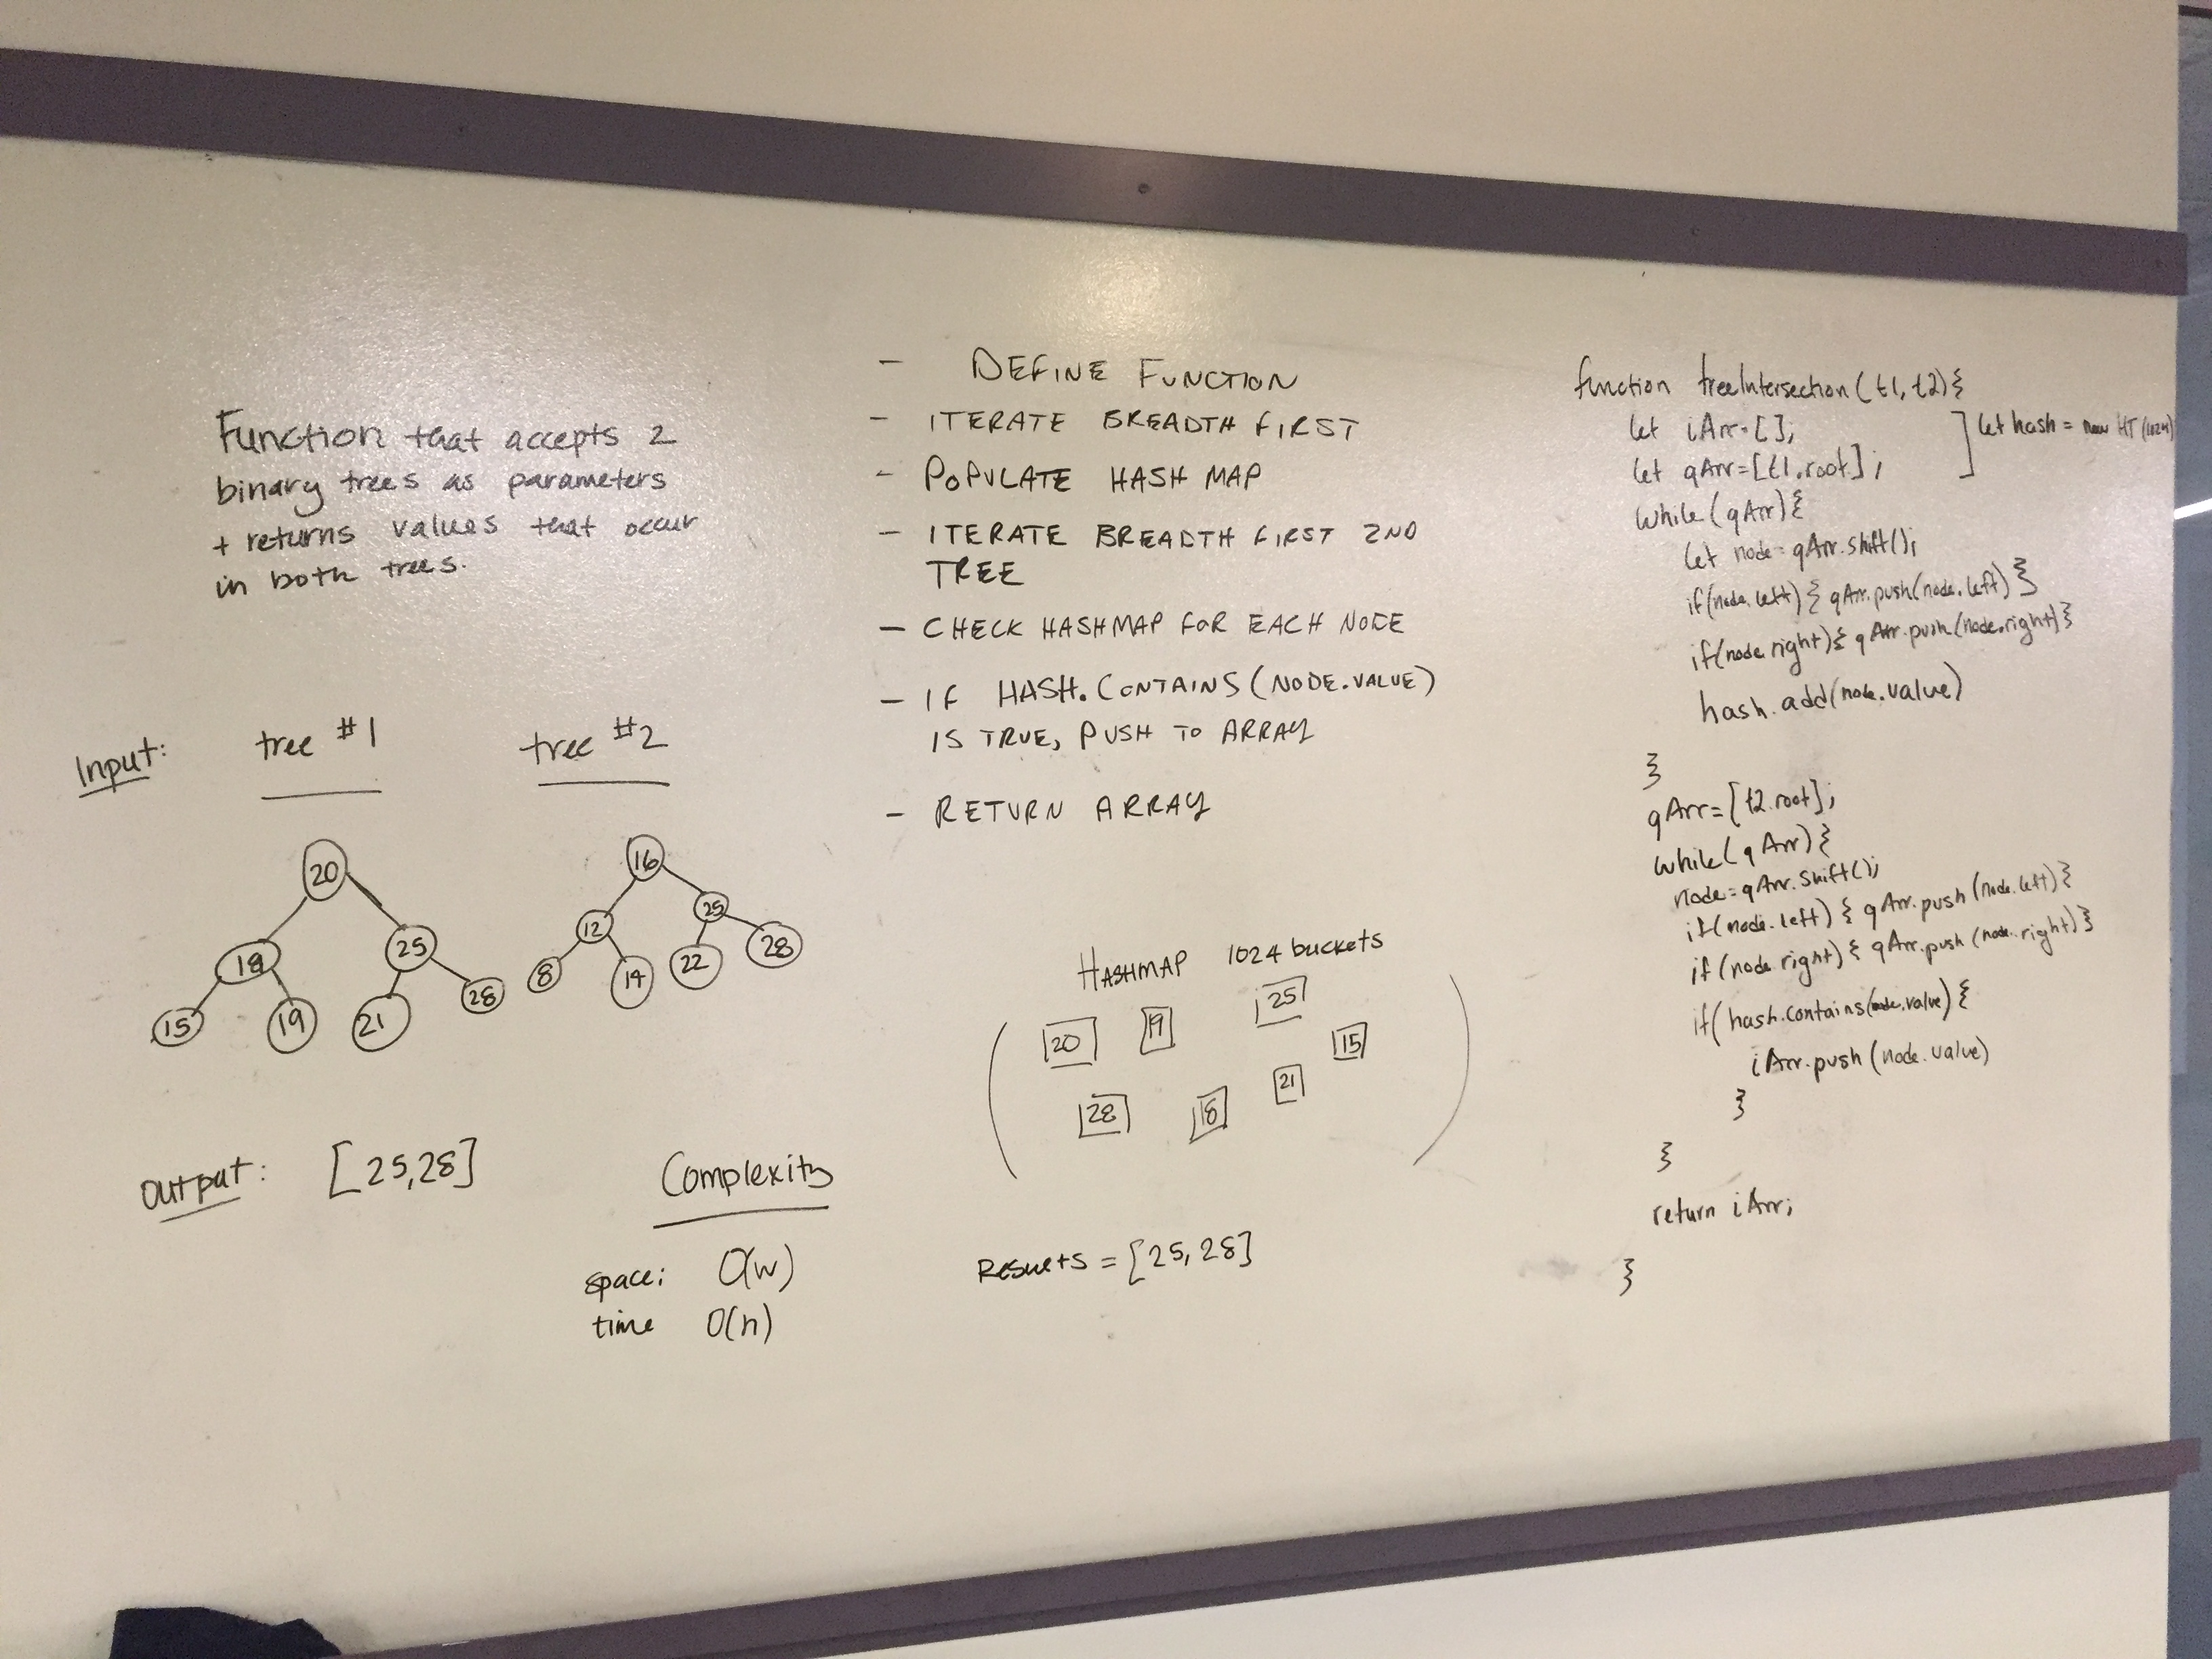 Function that accepts 2
binary trees as parameters
+ returns values that occur
in both trees.
Input:
tree #1
tree #2
20
18
25
15
19
21
28
16
12
25
8
14
22
28
Output: [25,28]
Complexity
space: O(w)
time O(n)
- DEFINE FUNCTION
- ITERATE BREADTH FIRST
- POPULATE HASH MAP
- ITERATE BREADTH FIRST 2ND
TREE
- CHECK HASHMAP FOR EACH NODE
- IF HASH.CONTAINS(NODE.VALUE)
IS TRUE, PUSH TO ARRAY
- RETURN ARRAY
HASHMAP 1024 buckets
20
19
25
15
28
18
21
Results = [25, 28]
function treeIntersection(t1, t2){
let iArr=[];
let qArr=[t1.root];
] let hash = new HT(1024)
while(qArr){
let node=qArr.shift();
if(node.left){ qArr.push(node.left)}
if(node.right){ qArr.push(node.right)}
hash.add(node.value)
}
qArr=[t2.root];
while(qArr){
node=qArr.shift();
if(node.left){ qArr.push(node.left)}
if(node.right){ qArr.push(node.right)}
if(hash.contains(node.value){
iArr.push(node.value)
}
}
return iArr;
}